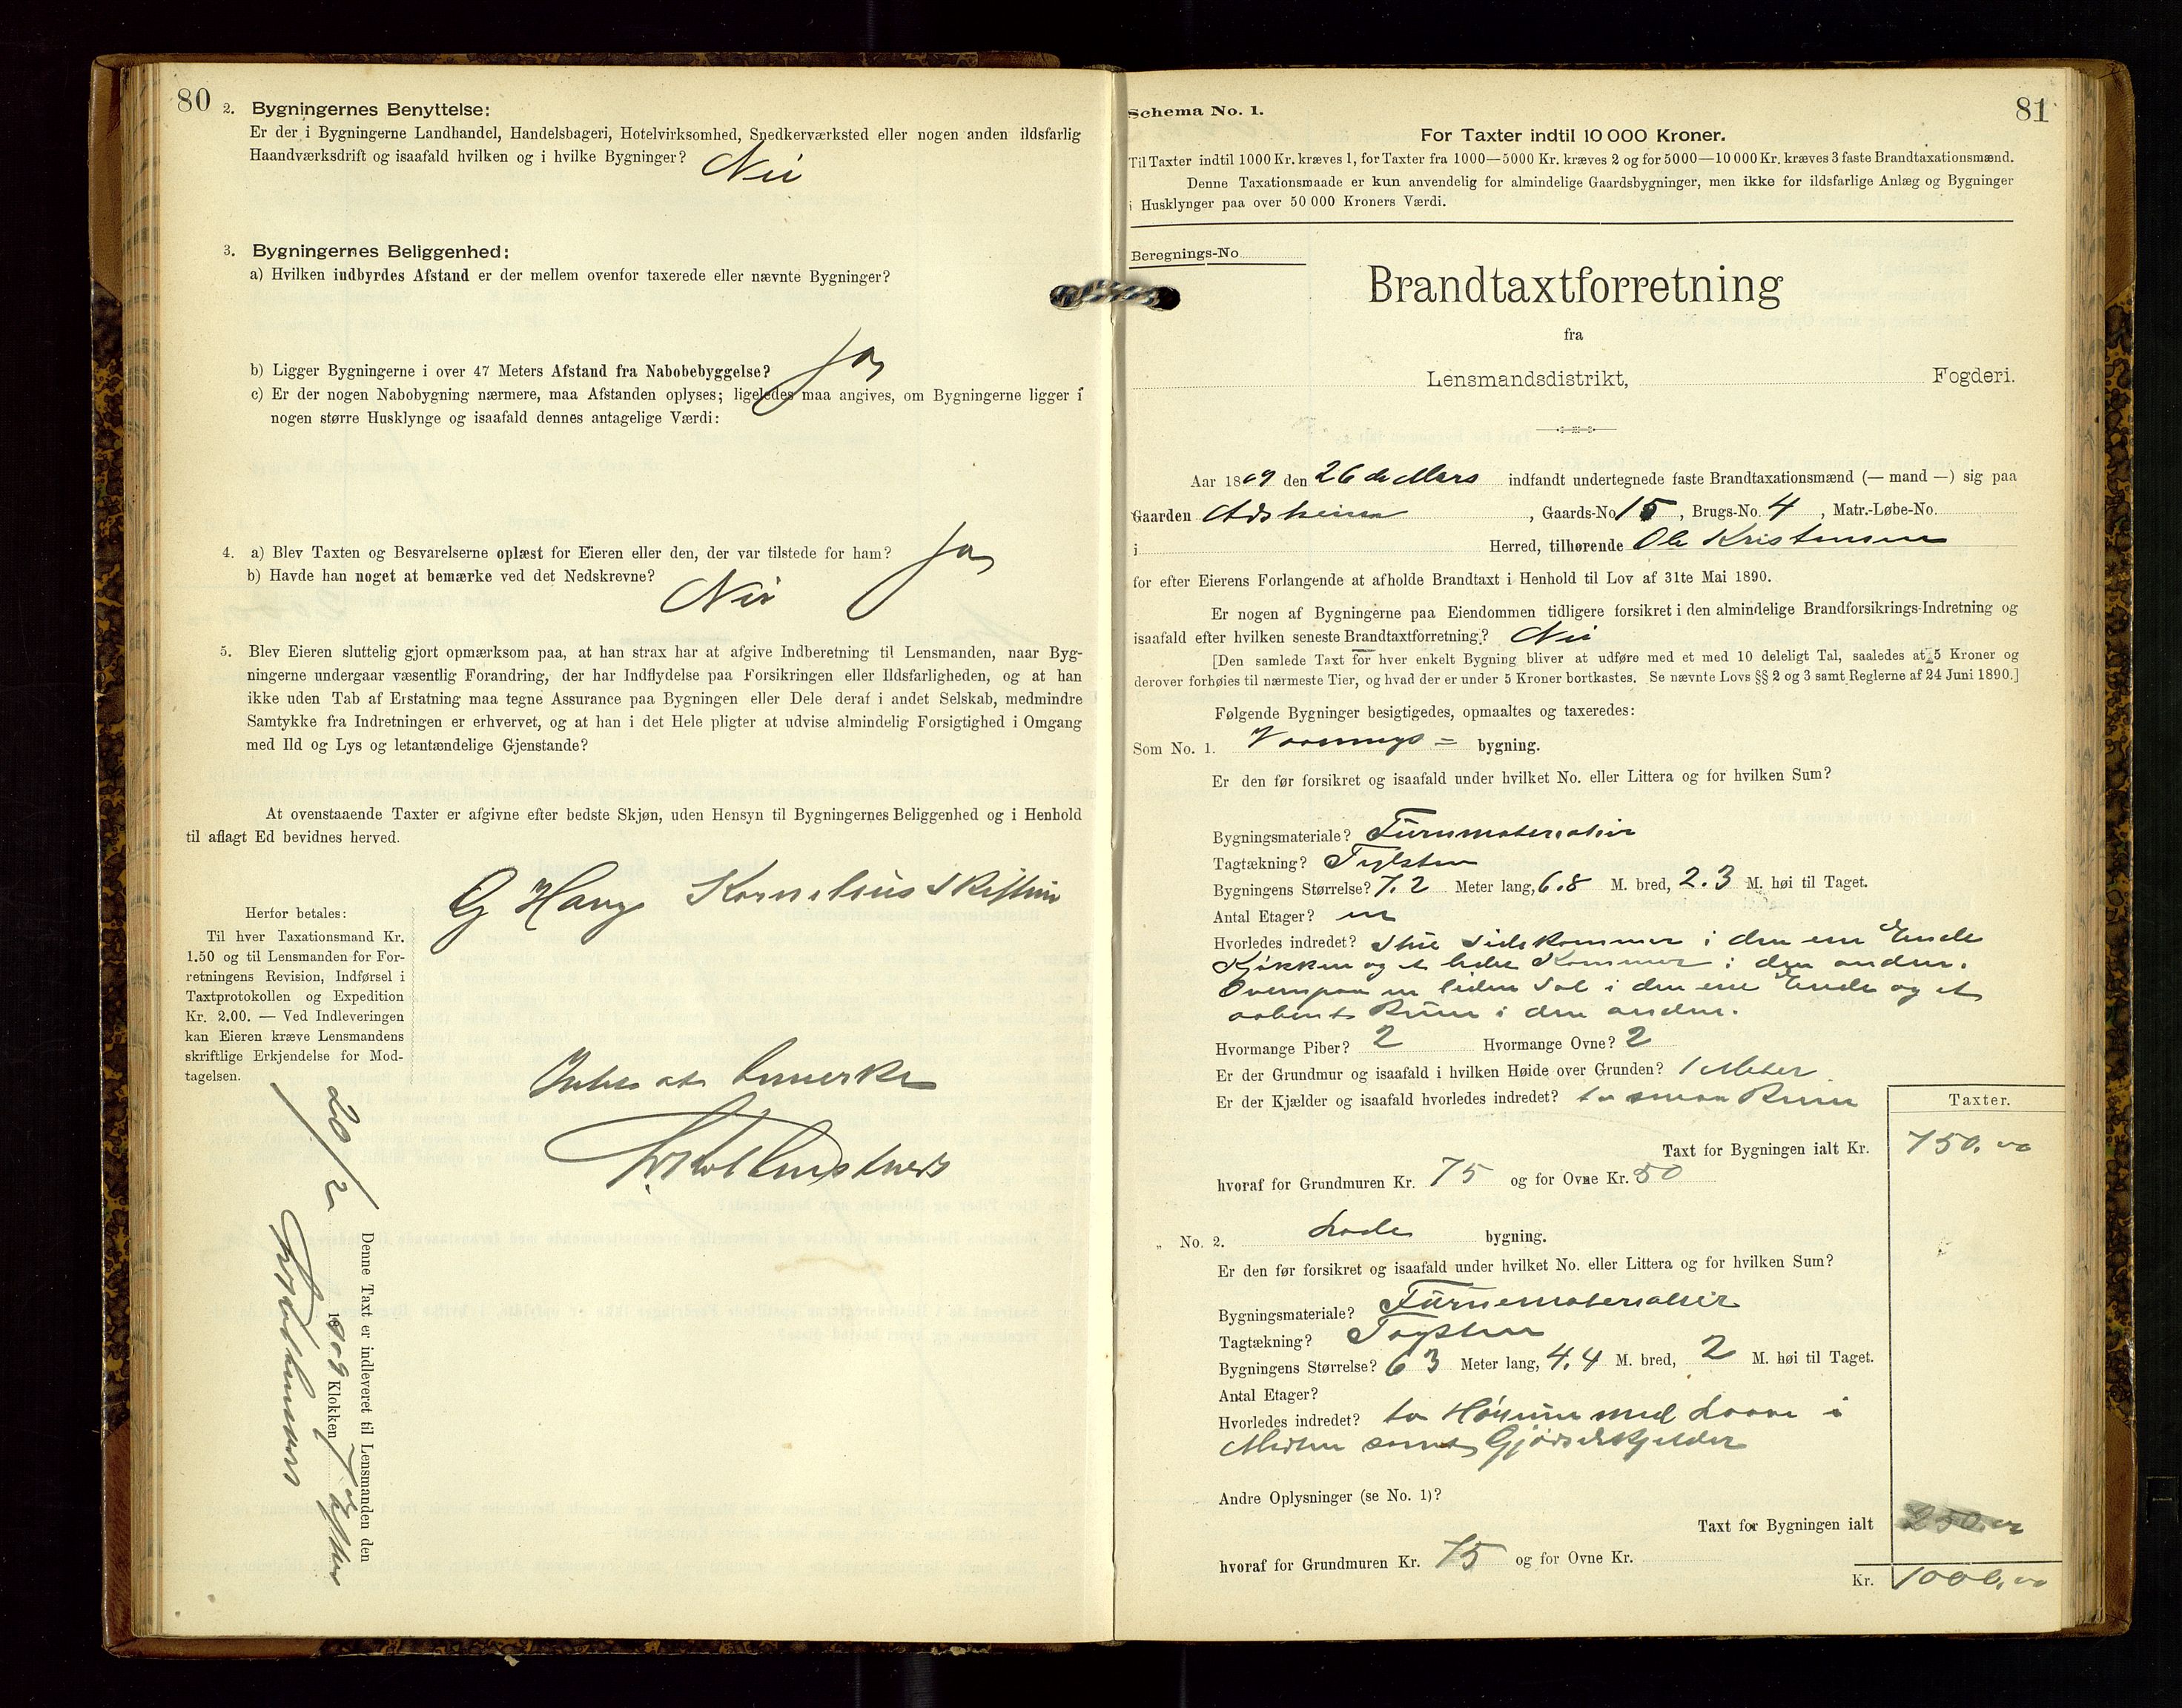 80
2. Bygningernes Benyttelse:
Er der i Bygningerne Landhandel, Handelsbageri, Hotelvirksomhed, Snedkerværksted eller nogen anden ildsfarlig
Haandværksdrift og isaafald hvilken og i hvilke Bygninger? Nei
3. Bygningernes Beliggenhed:
a) Hvilken indbyrdes Afstand er der mellem ovenfor taxerede eller nævnte Bygninger?
b) Ligger Bygningerne i over 47 Meters Afstand fra Nabobebyggelse? Ja
c) Er der nogen Nabobygning nærmere, maa Afstanden oplyses; ligeledes maa angives, om Bygningerne ligger i
nogen større Husklynge og isaafald dennes antagelige Værdi:
4. a) Blev Taxten og Besvarelserne oplæst for Eieren eller den, der var tilstede for ham? Ja
b) Havde han noget at bemærke ved det Nedskrevne? Nei
5. Blev Eieren sluttelig gjort opmærksom paa, at han strax har at afgive Indberetning til Lensmanden, naar Byg-
ningerne undergaar væsentlig Forandring, der har Indflydelse paa Forsikringen eller Ildsfarligheden, og at han
ikke uden Tab af Erstatning maa tegne Assurance paa Bygningen eller Dele deraf i andet Selskab, medmindre
Samtykke fra Indretningen er erhvervet, og at han i det Hele pligter at udvise almindelig Forsigtighed i Omgang
med Ild og Lys og letantændelige Gjenstande?
At ovenstaaende Taxter er afgivne efter bedste Skjøn, uden Hensyn til Bygningernes Beliggenhed og i Henhold
til aflagt Ed bevidnes herved.
G Hauge Kornelius
Herfor betales:
Til hver Taxationsmand Kr.
1.50 og til Lensmanden for For-
retningens Revision, Indførsel i
Taxtprotokollen og Expedition
Kr. 2.00. — Ved Indleveringen
kan Eieren kræve Lensmandens
skriftlige Erkjendelse for Mod-
tagelsen.
Intet at bemerke
Denne Taxt er indleveret til Lensmanden den
20/2 1909 Klokken 7 Efter
Schema No. 1.
81
For Taxter indtil 10 000 Kroner.
Til Taxter indtil 1000 Kr. kræves 1, for Taxter fra 1000—5000 Kr. kræves 2 og for 5000—10 000 Kr. kræves 3 faste Brandtaxationsmænd.
Denne Taxationsmaade er kun anvendelig for almindelige Gaardsbygninger, men ikke for ildsfarlige Anlæg og Bygninger
i Husklynger paa over 50 000 Kroners Værdi.
Beregnings-No
Brandtaxtforretning
fra
Lensmandsdistrikt, Fogderi.
Aar 1809 den 26de Mars indfandt undertegnede faste Brandtaxationsmænd (— mand —) sig paa
Gaarden Adsheim, Gaards-No 15, Brugs-No. 4, Matr.-Løbe-No.
i Herred, tilhørende Ole Kristensen
for efter Eierens Forlangende at afholde Brandtaxt i Henhold til Lov af 31te Mai 1890.
Er nogen af Bygningerne paa Eiendommen tidligere forsikret i den almindelige Brandforsikrings-Indretning og
isaafald efter hvilken seneste Brandtaxtforretning? Nei
[Den samlede Taxt for hver enkelt Bygning bliver at udføre med et med 10 deleligt Tal, saaledes at 5 Kroner og
derover forhøies til nærmeste Tier, og hvad der er under 5 Kroner bortkastes. Se nævnte Lovs §§ 2 og 3 samt Reglerne af 24 Juni 1890.]
Følgende Bygninger besigtigedes, opmaaltes og taxeredes:
Som No. 1. Vaanings= bygning.
Er den før forsikret og isaafald under hvilket No. eller Littera og for hvilken Sum?
Bygningsmateriale? Furumaterialier
Tagtækning? Teglsten
Bygningens Størrelse? 7.2 Meter lang, 6.8 M. bred, 2.3 M. høi til Taget.
Antal Etager? en
Hvorledes indredet? Stue Sidekammer i den ene Ende
Kjøkken og et lidet Kammer i den anden.
Ovenpaa en liden Sal i den ene Ende og et
aabent Rum i den anden.
Hvormange Piber? 2 Hvormange Ovne? 2
Er der Grundmur og isaafald i hvilken Høide over Grunden? 1 Meter
Er der Kjælder og isaafald hvorledes indredet? to smaa Rum
Taxter.
Taxt for Bygningen ialt Kr. 750.00
hvoraf for Grundmuren Kr. 75 og for Ovne Kr. 50
„ No. 2. Lade bygning.
Er den før forsikret og isaafald under hvilket No. eller Littera og for hvilken Sum?
Bygningsmateriale? Furuematerialier
Tagtækning? Tagsten
Bygningens Størrelse? 6 3 Meter lang, 4.4 M. bred, 2 M. høi til Taget.
Antal Etager?
Hvorledes indredet? to Hørum med Laave i
Midten samt Gjødselkjelder
Andre Oplysninger (se No. 1)?
Taxt for Bygningen ialt 250.00
hvoraf for Grundmuren Kr. 75 og for Ovne Kr.
Kr. 1000,00